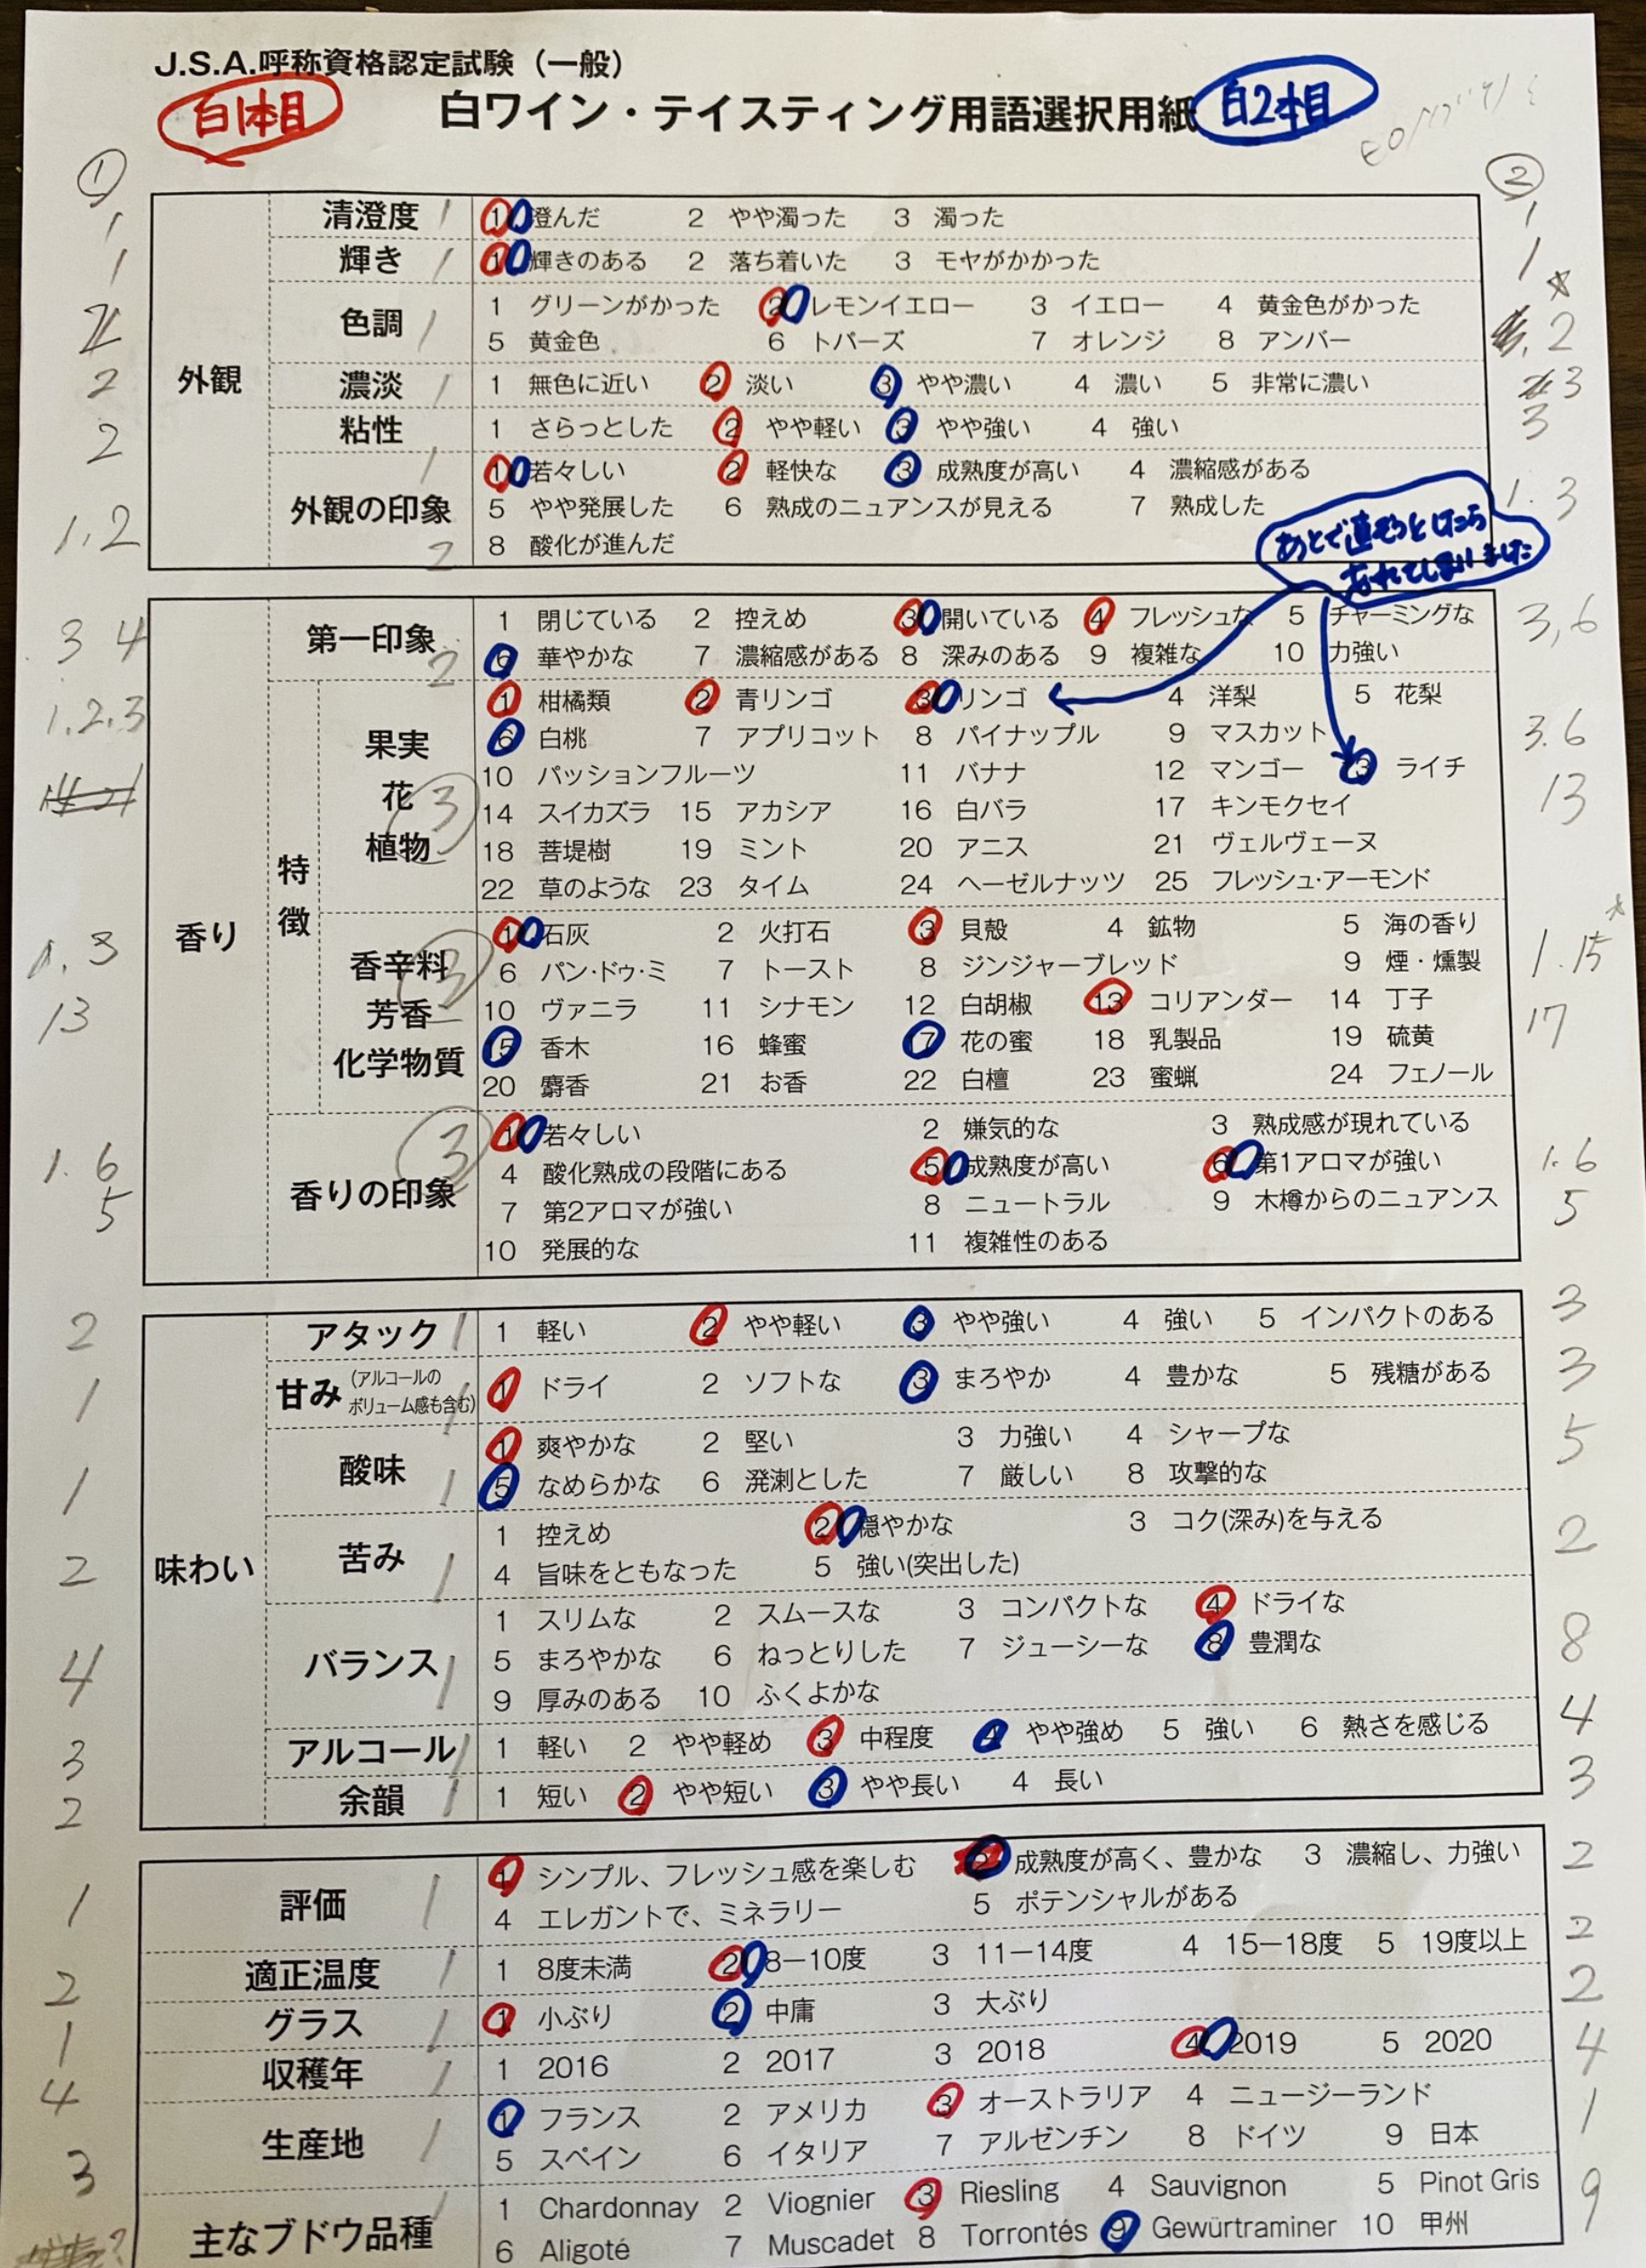 J.S.A.呼称資格認定試験（一般）
白1本目
白ワイン・テイスティング用語選択用紙
白2本目
① ②
外観
1 清澄度 1 1 澄んだ 2 やや濁った 3 濁った 1
1 輝き 1 1 輝きのある 2 落ち着いた 3 モヤがかかった 1
2 色調 1 1 グリーンがかった 2 レモンイエロー 3 イエロー 4 黄金色がかった
5 黄金色 6 トパーズ 7 オレンジ 8 アンバー 2
2 濃淡 1 1 無色に近い 2 淡い 3 やや濃い 4 濃い 5 非常に濃い 3
2 粘性 1 さらっとした 2 やや軽い 3 やや強い 4 強い 3
1,2 外観の印象 2 1 若々しい 2 軽快な 3 成熟度が高い 4 濃縮感がある 1.3
5 やや発展した 6 熟成のニュアンスが見える 7 熟成した
8 酸化が進んだ
あとで直そうとしたら
忘れてしまいました
香り
3 4 第一印象 2 1 閉じている 2 控えめ 3 開いている 4 フレッシュな 5 チャーミングな 3,6
6 華やかな 7 濃縮感がある 8 深みのある 9 複雑な 10 力強い
特徴
1.2.3 果実 花 植物 3 1 柑橘類 2 青リンゴ 3 リンゴ 4 洋梨 5 花梨
6 白桃 7 アプリコット 8 パイナップル 9 マスカット 3.6
10 パッションフルーツ 11 バナナ 12 マンゴー 13 ライチ 13
14 スイカズラ 15 アカシア 16 白バラ 17 キンモクセイ
18 菩提樹 19 ミント 20 アニス 21 ヴェルヴェーヌ
22 草のような 23 タイム 24 ヘーゼルナッツ 25 フレッシュ・アーモンド
1.3 香辛料 芳香 化学物質 3 1 石灰 2 火打石 3 貝殻 4 鉱物 5 海の香り 1.15
6 パン・ドゥ・ミ 7 トースト 8 ジンジャーブレッド 9 煙・燻製
13 10 ヴァニラ 11 シナモン 12 白胡椒 13 コリアンダー 14 丁子 17
15 香木 16 蜂蜜 17 花の蜜 18 乳製品 19 硫黄
20 麝香 21 お香 22 白檀 23 蜜蝋 24 フェノール
1.6 香りの印象 3 1 若々しい 2 嫌気的な 3 熟成感が現れている 1.6
5 4 酸化熟成の段階にある 5 成熟度が高い 6 第1アロマが強い 5
7 第2アロマが強い 8 ニュートラル 9 木樽からのニュアンス
10 発展的な 11 複雑性のある
味わい
2 アタック 1 1 軽い 2 やや軽い 3 やや強い 4 強い 5 インパクトのある 3
1 甘み (アルコールのボリューム感も含む) 1 1 ドライ 2 ソフトな 3 まろやか 4 豊かな 5 残糖がある 3
1 酸味 1 1 爽やかな 2 堅い 3 力強い 4 シャープな 5
5 なめらかな 6 溌剌とした 7 厳しい 8 攻撃的な
2 苦み 1 1 控えめ 2 穏やかな 3 コク(深み)を与える 2
4 旨味をともなった 5 強い(突出した)
4 バランス 1 1 スリムな 2 スムースな 3 コンパクトな 4 ドライな 8
5 まろやかな 6 ねっとりした 7 ジューシーな 8 豊潤な
9 厚みのある 10 ふくよかな
3 アルコール 1 1 軽い 2 やや軽め 3 中程度 4 やや強め 5 強い 6 熱さを感じる 4
2 余韻 1 1 短い 2 やや短い 3 やや長い 4 長い 3
1 評価 1 1 シンプル、フレッシュ感を楽しむ 2 成熟度が高く、豊かな 3 濃縮し、力強い 2
4 エレガントで、ミネラリー 5 ポテンシャルがある
2 適正温度 1 1 8度未満 2 8－10度 3 11－14度 4 15－18度 5 19度以上 2
1 グラス 1 1 小ぶり 2 中庸 3 大ぶり 2
4 収穫年 1 1 2016 2 2017 3 2018 4 2019 5 2020 4
3 生産地 1 1 フランス 2 アメリカ 3 オーストラリア 4 ニュージーランド 1
5 スペイン 6 イタリア 7 アルゼンチン 8 ドイツ 9 日本
主なブドウ品種 1 Chardonnay 2 Viognier 3 Riesling 4 Sauvignon 5 Pinot Gris 9
6 Aligoté 7 Muscadet 8 Torrontés 9 Gewürtraminer 10 甲州